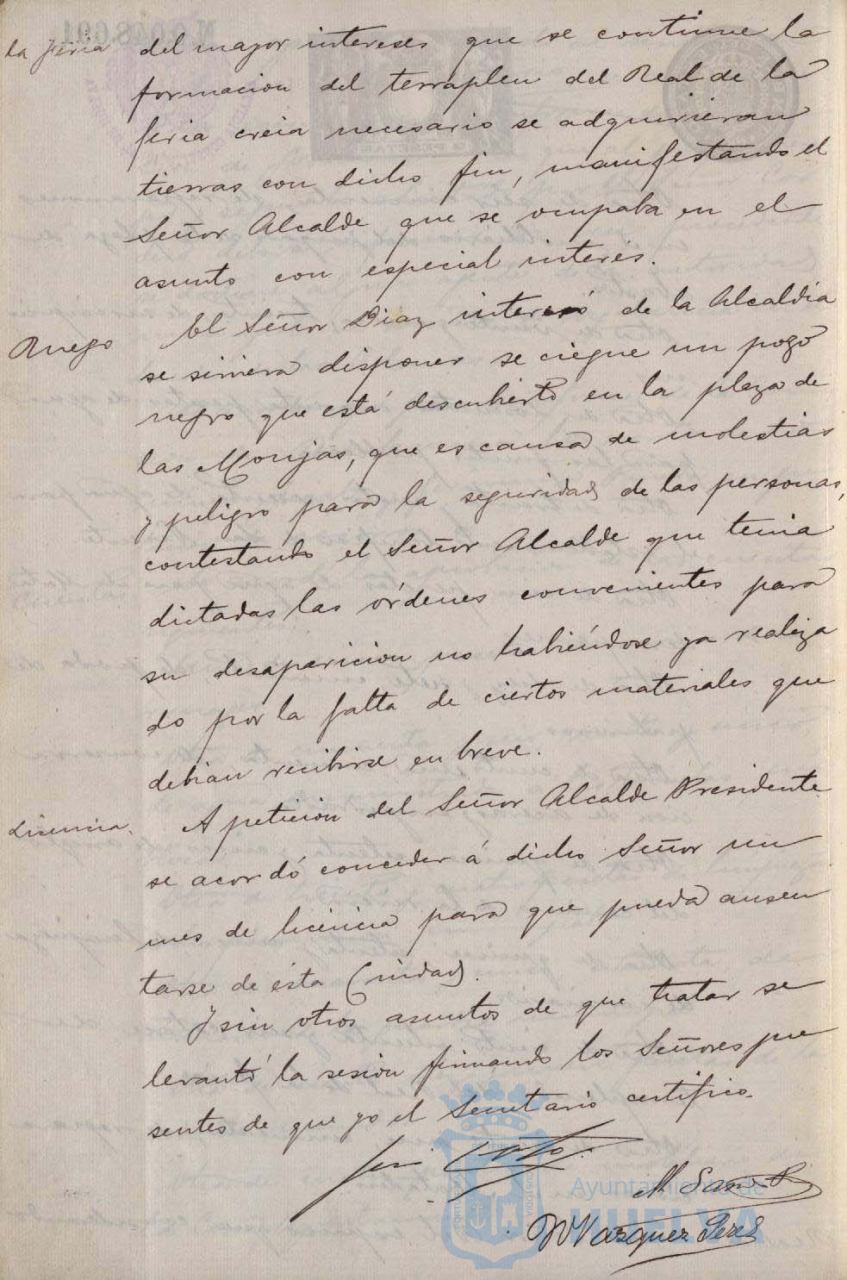 la feria
del mayor intereses que se continue la
formacion del terraplen del Real de la
feria creia necesario se adquirieran
tierras con dicho fin, manifestando el
Señor Alcalde que se ocupaba en el
asunto con especial interés.
Ruego
El Señor Diaz interesó de la Alcaldia
se sirviera disponer se ciegue un pozo
negro que está descubierto en la plaza de
las Monjas, que es causa de molestias
y peligro para la seguridad de las personas,
contestando el Señor Alcalde que tenia
dictadas las órdenes convenientes para
su desaparicion no habiéndose ya realiza
do por la falta de ciertos materiales que
debian recibirse en breve.
Licencia.
A peticion del Señor Alcalde Presidente
se acordó conceder á dicho Señor un
mes de licencia para que pueda ausen
tarse de ésta Ciudad.
Y sin otros asuntos de que tratar se
levantó la sesión firmando los Señores pre
sentes de que yo el Secretario certifico.
M
Vazquez Perez
Ayuntamiento de
HUELVA